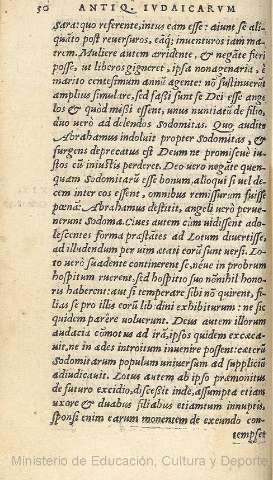 50 ANTIQ. IVDAICARVM
Sara: quo referente, intus eam esse: aiunt se ali-
quãto post reuersuros, eáq; inuenturos iam ma-
trem. Muliere autem arridente, & negãte fieri
posse, ut liberos gigneret, ipsa nonagenaria, &
marito centesimum annũ agente: nõ sustinuerũt
amplius simulare, sed fassi sunt se Dei esse ange
los & quòd missi essent, unus nuntiatũ de filio,
duo uerò ad delendos Sodomitas. Quo audito
Abrahamus indoluit propter Sodomitas, &
surgens deprecatus est Deum ne promiscuè iu-
stos cũ iniustis perderet. Deo uero negãte quen-
quam Sodomitarũ esse bonum, alioqui si uel de
cem inter eos essent, omnibus remissurum fuisse
pœnã: Abrahamus destitit, angeli uerò perue-
nerunt Sodoma. Ciues autem cùm uidissent ado-
lescentes forma præstãtes ad Lotum diuertisse,
ad illudendum per uim ætati eorũ sunt uersi. Lo-
to uerò suadente continerent se, neue in probrum
hospitum ruerent, sed hospitio suo nõnihil hono-
ris haberent: aut si temperare sibi nõ quirent, fi-
lias se pro illis eorũ libidini exhibiturum: ne sic
quidem parêre uoluerunt. Deus autem illorum
audacia cõmotus ad irã, ipsos quidem excæca-
uit, ne in ædes introitum inuenire possent: cæterũ
Sodomitarum populum uniuersum ad suppliciũ
adiudicauit. Lotus autem ab ipso præmonitus
de futuro excidio, discessit inde, assumpta etiam
uxore & duabus filiabus etiamtum innuptis,
sponsi enim earum monentem de exeundo con-
tempset
Ministerio de Educación, Cultura y Deporte